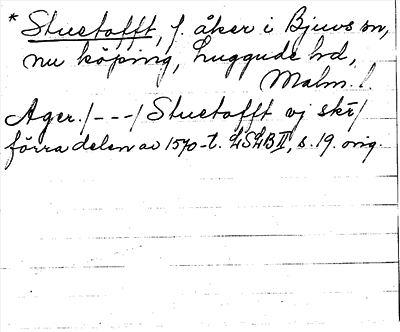 * Stuetofft, f. åker i Bjuvs sn,
nu köping, Luggude hd,
Malm. l.
Ager. /---/ Stuetofft vj skr /
förra delen av 1570-t. LSLB II, s. 19. orig.